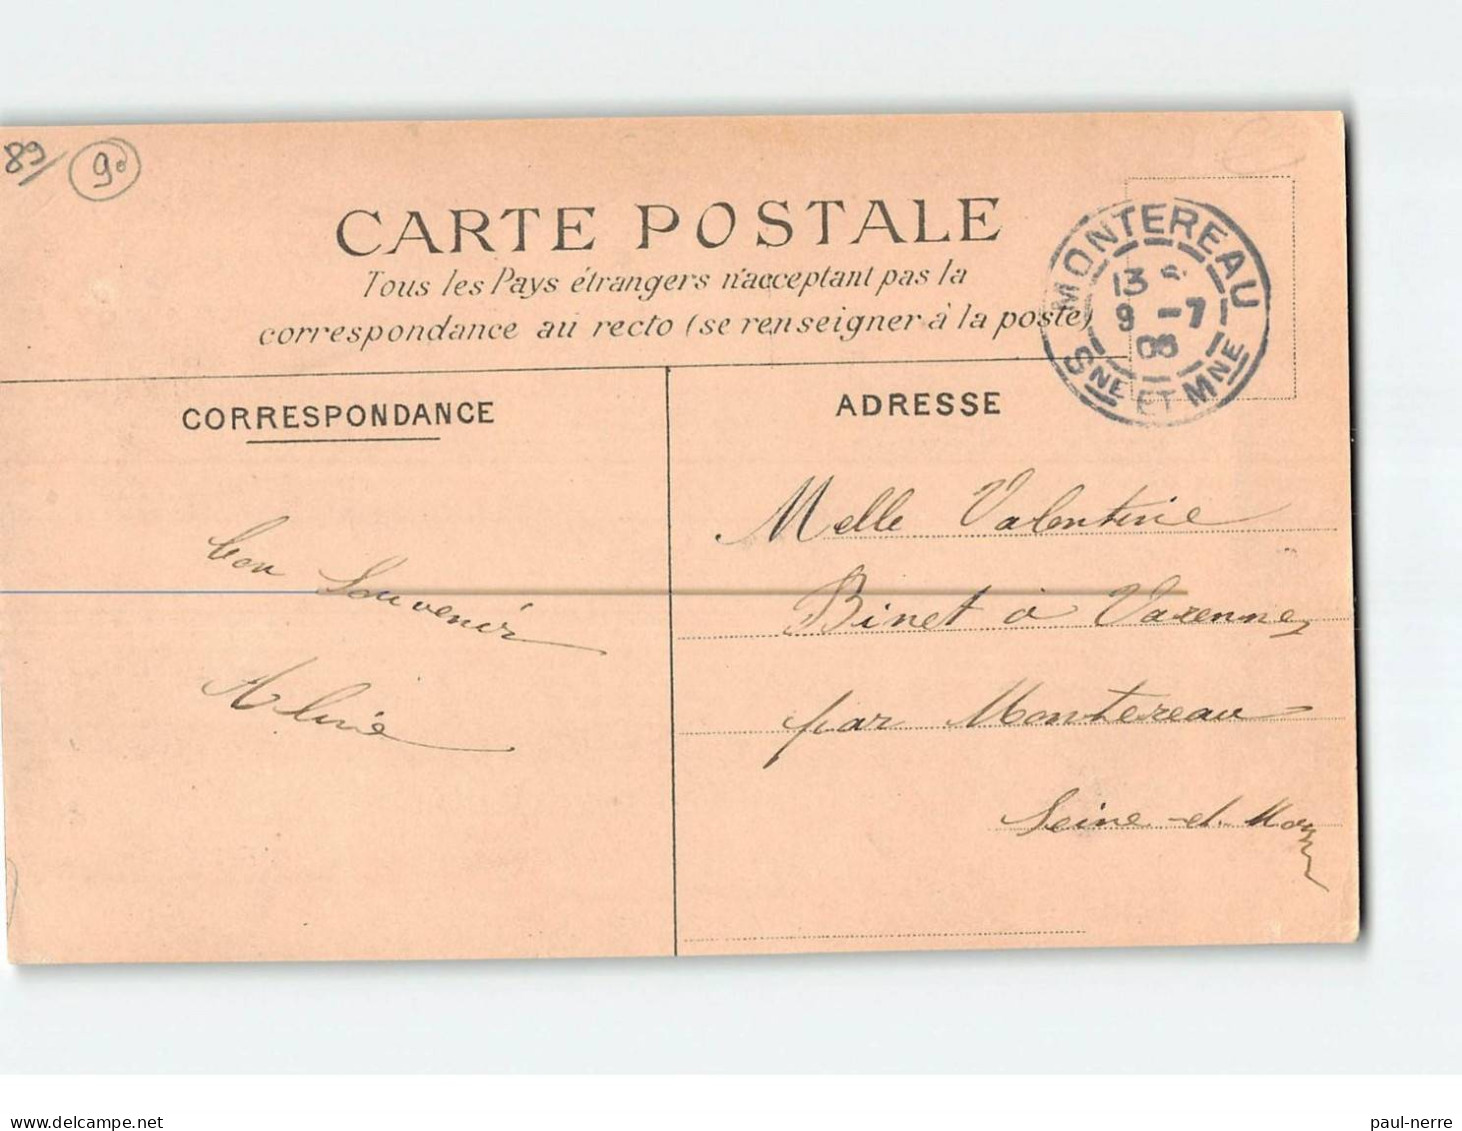 89/ 9°
CARTE POSTALE
Tous les Pays étrangers n'acceptant pas la
correspondance au recto (se renseigner à la poste)
MONTEREAU
13
9 -7
SNE ET MNE
CORRESPONDANCE
ADRESSE
bon Souvenir
Melle Valentine
Binet à Varennes
par Montereau
Seine-et-Marne
delcampe.net
paul-nerre